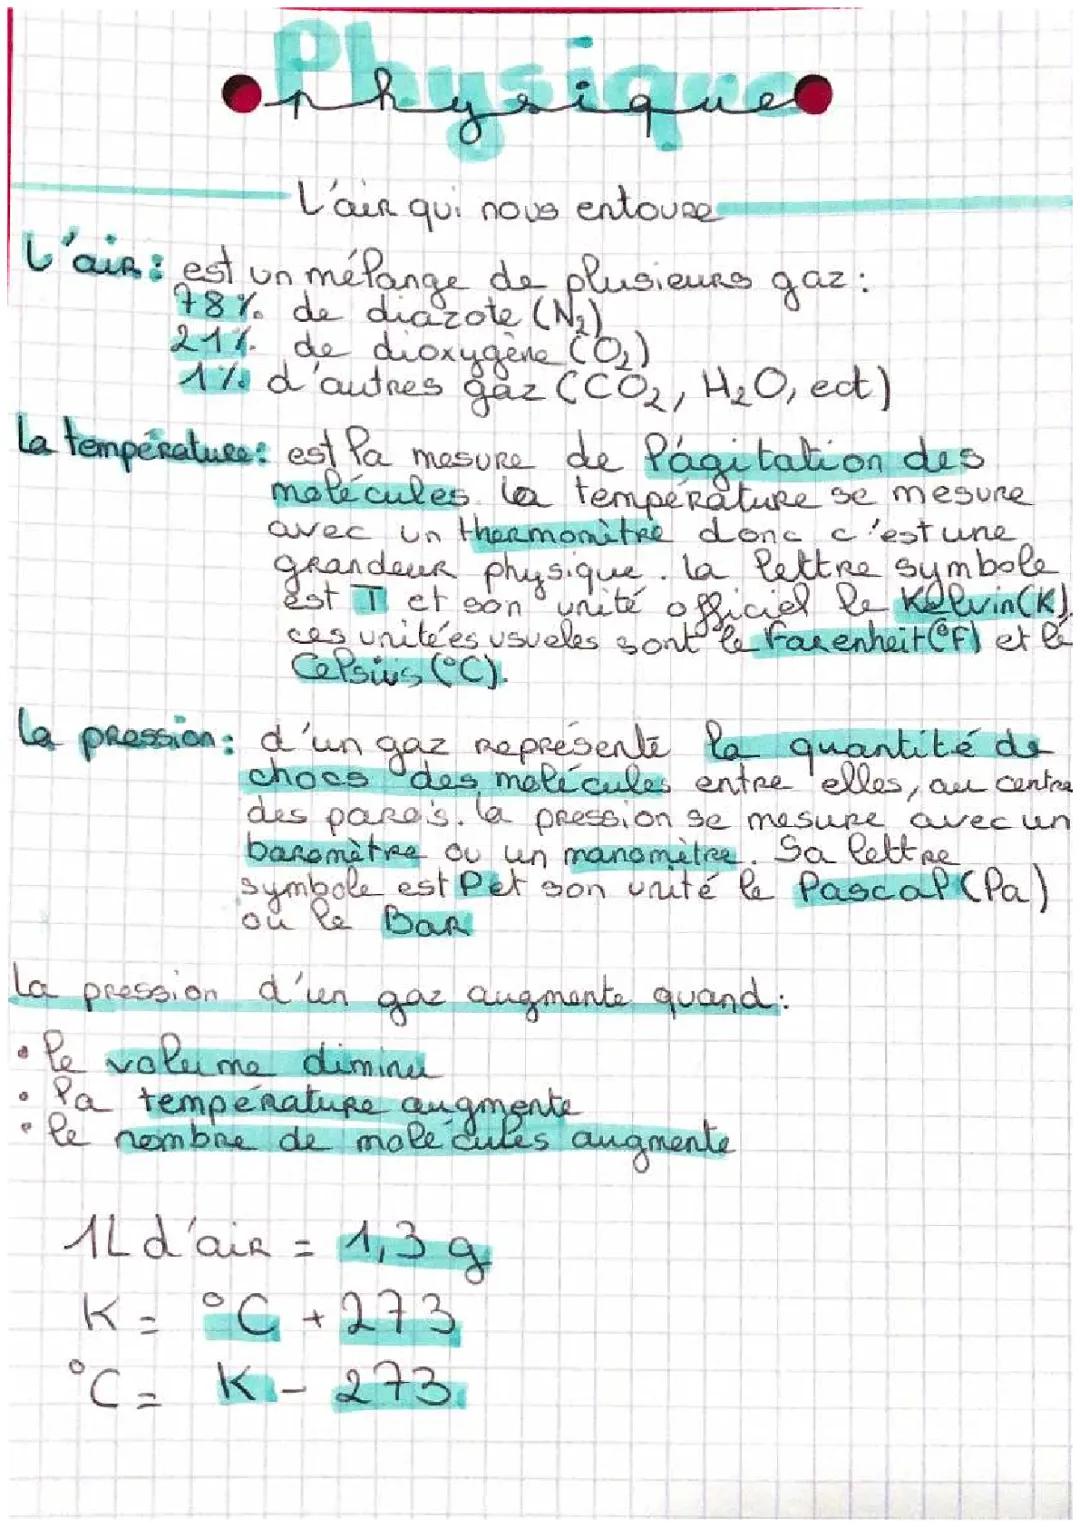 Physique
physique
L'air qui nous entoure
L'air: est un mélange de plusieurs gaz:
78% de diazote (N₂)
21% de dioxygène (O₂)
1% d'autres gaz (CO₂, H₂O, ect)
La température: est la mesure de l'agitation des
molécules. La température se mesure
avec un thermomètre donc c'est une
grandeur physique. La lettre symbole
est T et son unité officiel le Kelvin(K).
ces unitées usueles sont le Farenheit(°F) et le
Celsius (°C).
La pression: d'un gaz représente la quantité de
chocs des molécules entre elles, au centre
des parois. La pression se mesure avec un
baromètre ou un manomètre. Sa lettre
symbole est P et son unité le Pascal (Pa)
ou le Bar
La pression d'un gaz augmente quand:
• le volume diminu
• la température augmente
• le nombre de molécules augmente
1L d'air = 1,3 g
K = °C + 273
°C = K - 273